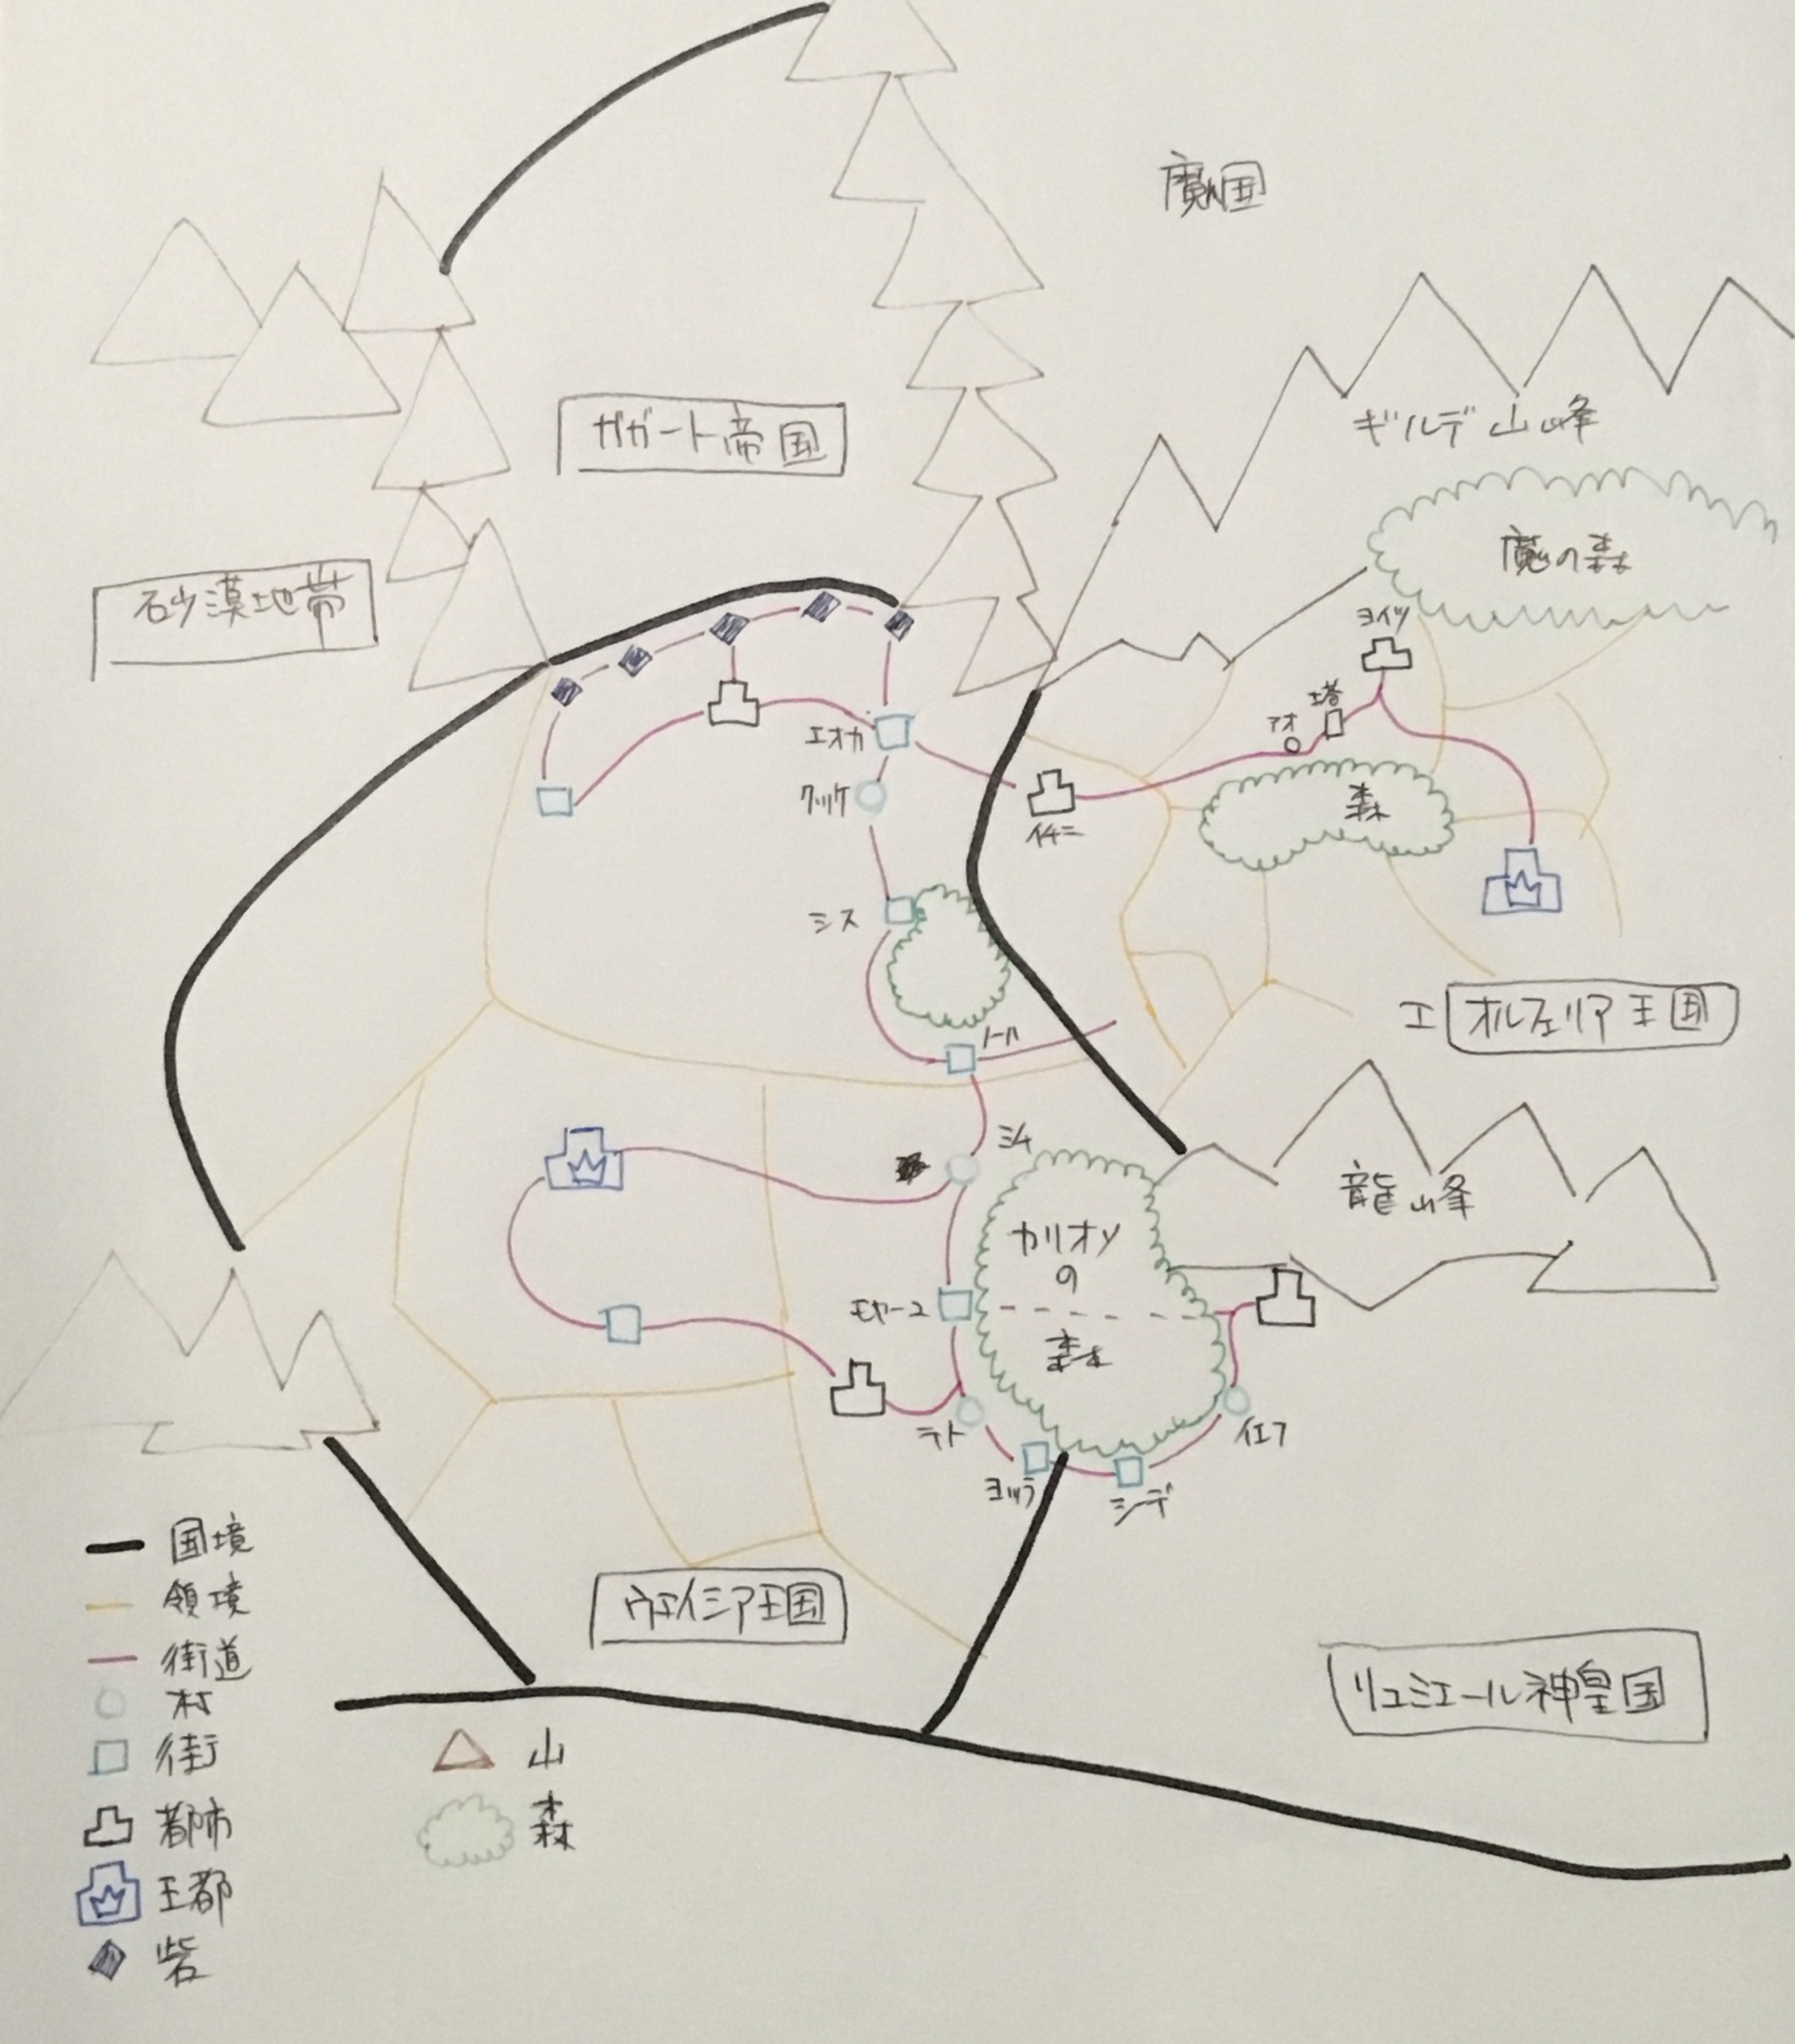 魔国
ギルデ山峰
ガガート帝国
魔の森
砂漠地帯
ヨイツ
塔
アオ
エオカ
クッケ
森
イチニ
シス
エオルフェリア王国
ノール
ミム
龍山峰
カリオソ
の
森
モヤーユ
テト
イエフ
ヨッラ
シーデ
国境
領境
ウェイシア王国
街道
リュミエール神皇国
村
街
山
都市
森
王都
砦